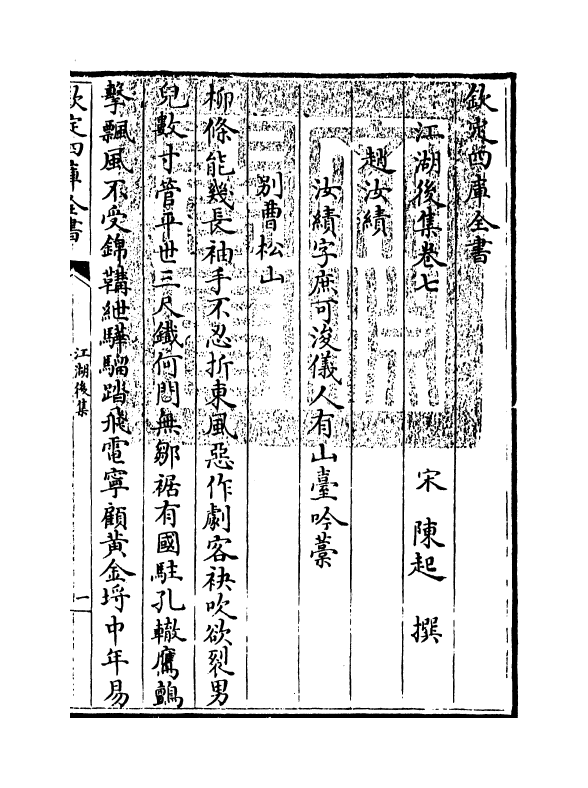 欽定四庫全書
江湖後集卷七　宋　陳起　撰
趙汝績
汝績字庶可浚儀人有山臺吟藁
别曹松山
柳條能幾長袖手不忍折東風惡作劇客袂吹欲裂男
兒數寸管平世三尺鐵何間無鄒裾有國駐孔轍鷹鸇
擊飄風不受錦鞲紲驊騮踏飛電寧顧黄金埒中年易
欽定四庫全書
江湖後集
一